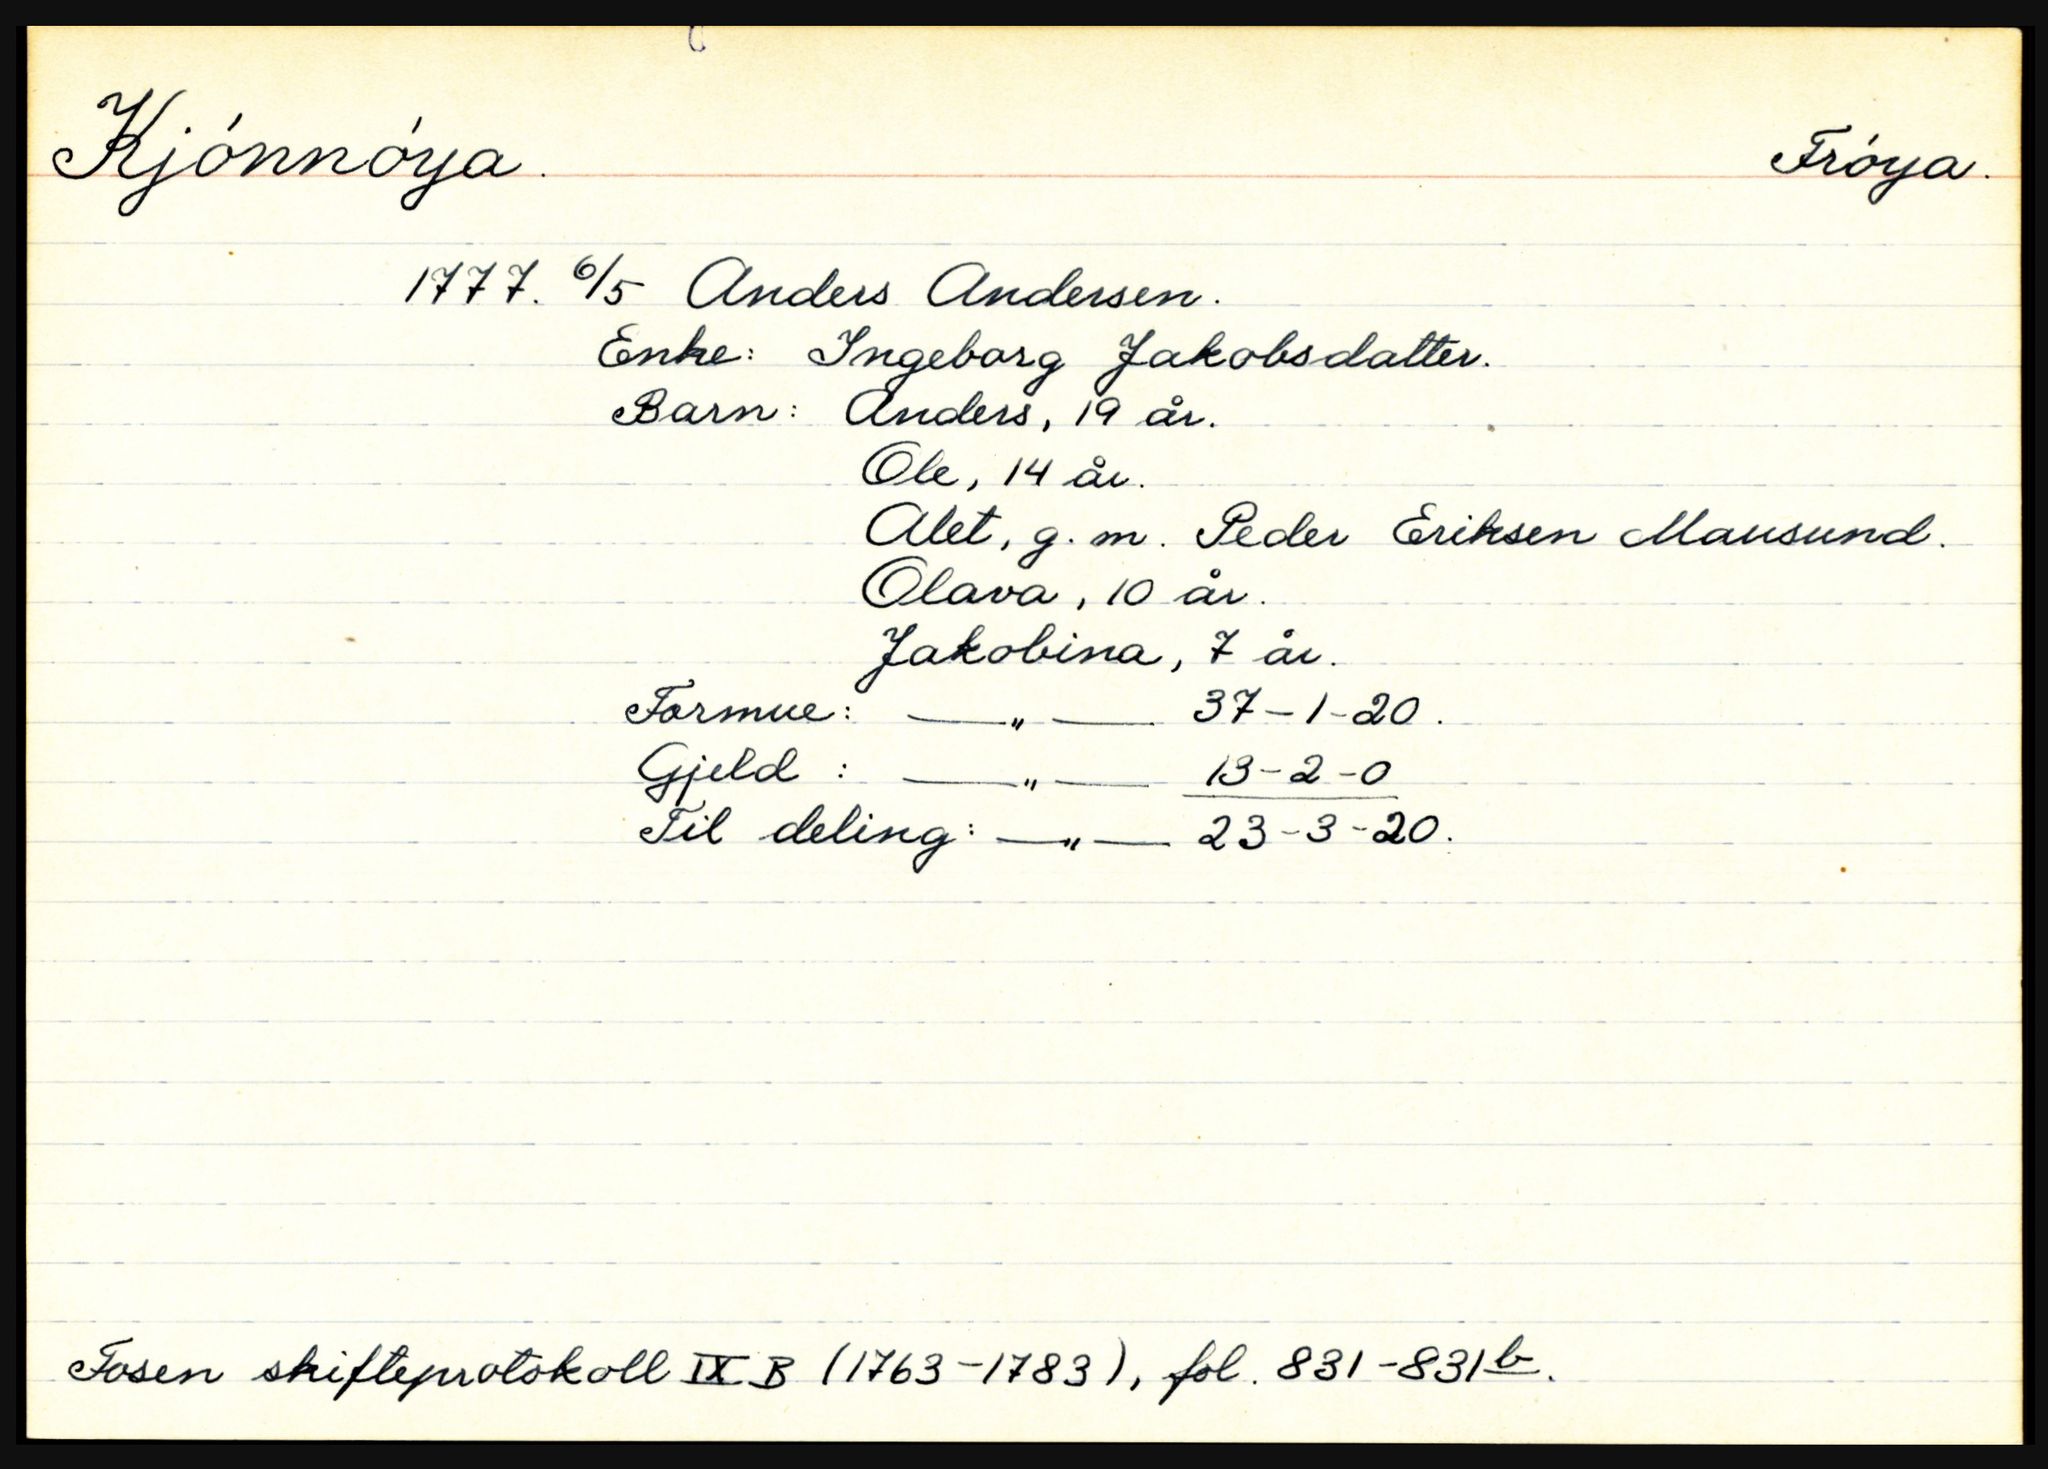 Kjónnóya. Fróya.
1777. 6/5 Anders Andersen.
Enke: Ingeborg Jakobsdatter.
Barn: Anders, 19 år.
Ole, 14 år.
Alet, g. m. Peder Eriksen Mausund.
Olava, 10 år.
Jakobina, 7 år.
Formue: —„— 37-1-20.
Gjeld : —„— 13-2-0
Til deling: —„— 23-3-20.
Fosen skifteprotokoll IX B (1763-1783), fol. 831-831b.